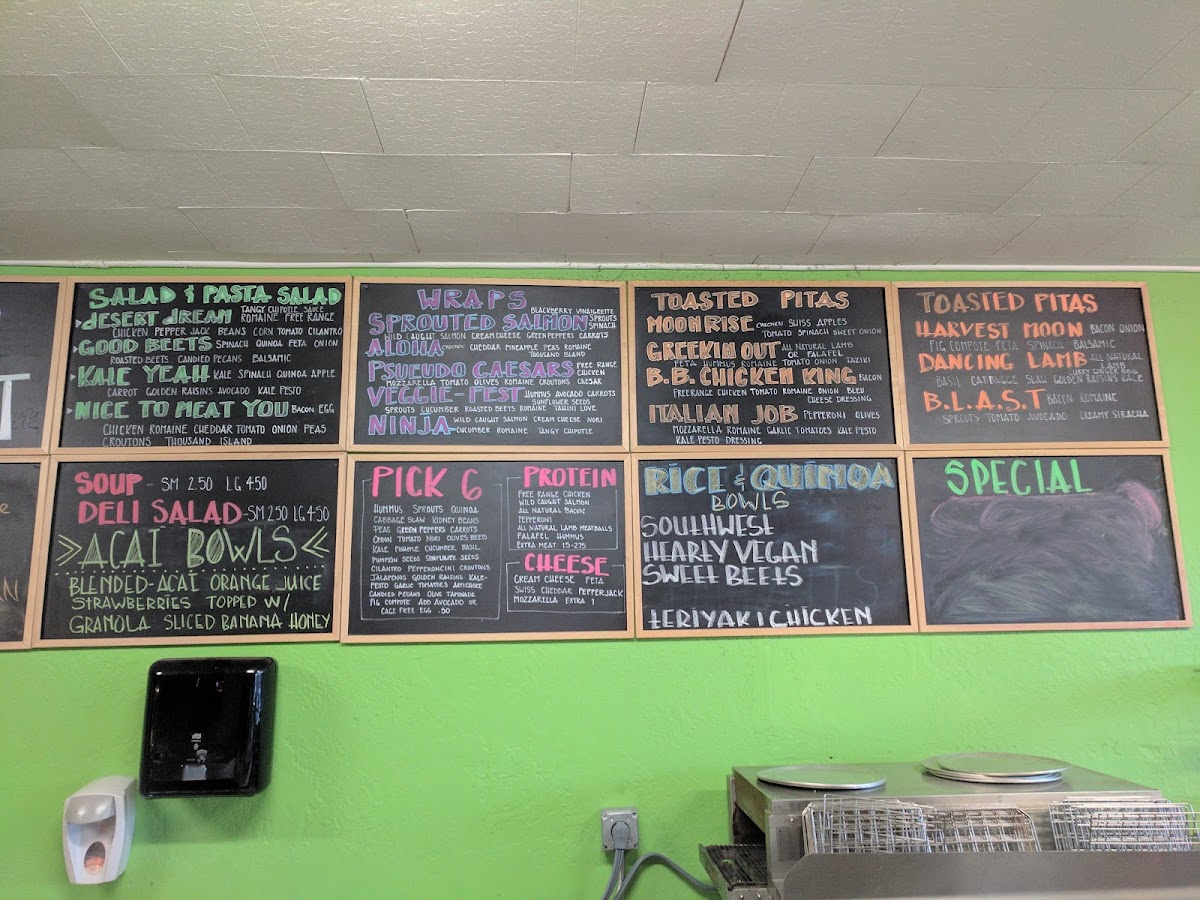 SALAD & PASTA SALAD
DESERT DREAM TANGY CHIPOTLE SAUCE
ROMAINE FREE RANGE
CHICKEN PEPPER JACK BEANS CORN TOMATO CILANTRO
GOOD BEETS SPINACH QUINOA FETA ONION
ROASTED BEETS CANDIED PECANS BALSAMIC
KALE YEAH KALE SPINACH QUINOA APPLE
CARROT GOLDEN RAISINS AVOCADO KALE PESTO
NICE TO MEAT YOU BACON EGG
CHICKEN ROMAINE CHEDDAR TOMATO ONION PEAS
CROUTONS THOUSAND ISLAND
WRAPS
BLACKBERRY VINAIGRETTE
SPROUTED SALMON SPROUTS
SPINACH
WILD CAUGHT SALMON CREAM CHEESE GREEN PEPPERS CARROTS
ALOHA CHICKEN CHEDDAR PINEAPPLE PEAS ROMAINE
THOUSAND ISLAND
PSUEUDO CAESARS FREE RANGE
CHICKEN
MOZZARELLA TOMATO OLIVES ROMAINE CROUTONS CAESAR
VEGGIE-FEST HUMMUS AVOCADO CARROTS
SUNFLOWER SEEDS
SPROUTS CUCUMBER ROASTED BEETS ROMAINE TAHINI LOVE
NINJA WILD CAUGHT SALMON CREAM CHEESE NORI
CUCUMBER ROMAINE TANGY CHIPOTLE
TOASTED PITAS
MOONRISE CHICKEN SWISS APPLES
TOMATO SPINACH SWEET ONION
GREEKIN OUT ALL NATURAL LAMB
OR FALAFEL
FETA HUMMUS ROMAINE TOMATO ONION TAZIKI
B.B. CHICKEN KING BACON
FREE RANGE CHICKEN TOMATO ROMAINE ONION BLEU
CHEESE DRESSING
ITALIAN JOB PEPPERONI OLIVES
MOZZARELLA ROMAINE GARLIC TOMATOES KALE PESTO
KALE PESTO DRESSING
TOASTED PITAS
HARVEST MOON BACON ONION
FIG COMPOTE FETA SPINACH BALSAMIC
DANCING LAMB ALL NATURAL
LAMB
CURRY GINGER BBQ
BASIL CABBAGE SLAW GOLDEN RAISINS KALE
B.L.A.S.T BACON ROMAINE
SPROUTS TOMATO AVOCADO CREAMY SIRACHA
SOUP - SM 2.50 LG 4.50
DELI SALAD - SM 2.50 LG 4.50
>>AÇAÍ BOWLS<<
BLENDED-AÇAÍ ORANGE JUICE
STRAWBERRIES TOPPED W/
GRANOLA SLICED BANANA HONEY
PICK 6
HUMMUS SPROUTS QUINOA
CABBAGE SLAW KIDNEY BEANS
PEAS GREEN PEPPERS CARROTS
ONION TOMATO NORI OLIVES BEETS
KALE PINEAPPLE CUCUMBER BASIL
PUMPKIN SEEDS SUNFLOWER SEEDS
CILANTRO PEPPERONCINI CROUTONS
JALAPENOS GOLDEN RAISINS KALE-
PESTO GARLIC TOMATOES ARTICHOKE
CANDIED PECANS OLIVE TAPENADE
FIG COMPOTE ADD AVOCADO OR
CAGE FREE EGG .50
PROTEIN
FREE RANGE CHICKEN
WILD CAUGHT SALMON
ALL NATURAL BACON
PEPPERONI
ALL NATURAL LAMB MEATBALLS
FALAFEL HUMMUS
EXTRA MEAT 1.5-2.75
CHEESE
CREAM CHEESE FETA
SWISS CHEDDAR PEPPERJACK
MOZZARELLA EXTRA 1
RICE & QUINOA
BOWLS
SOUTHWEST
HEARTY VEGAN
SWEET BEETS
TERIYAKI CHICKEN
SPECIAL